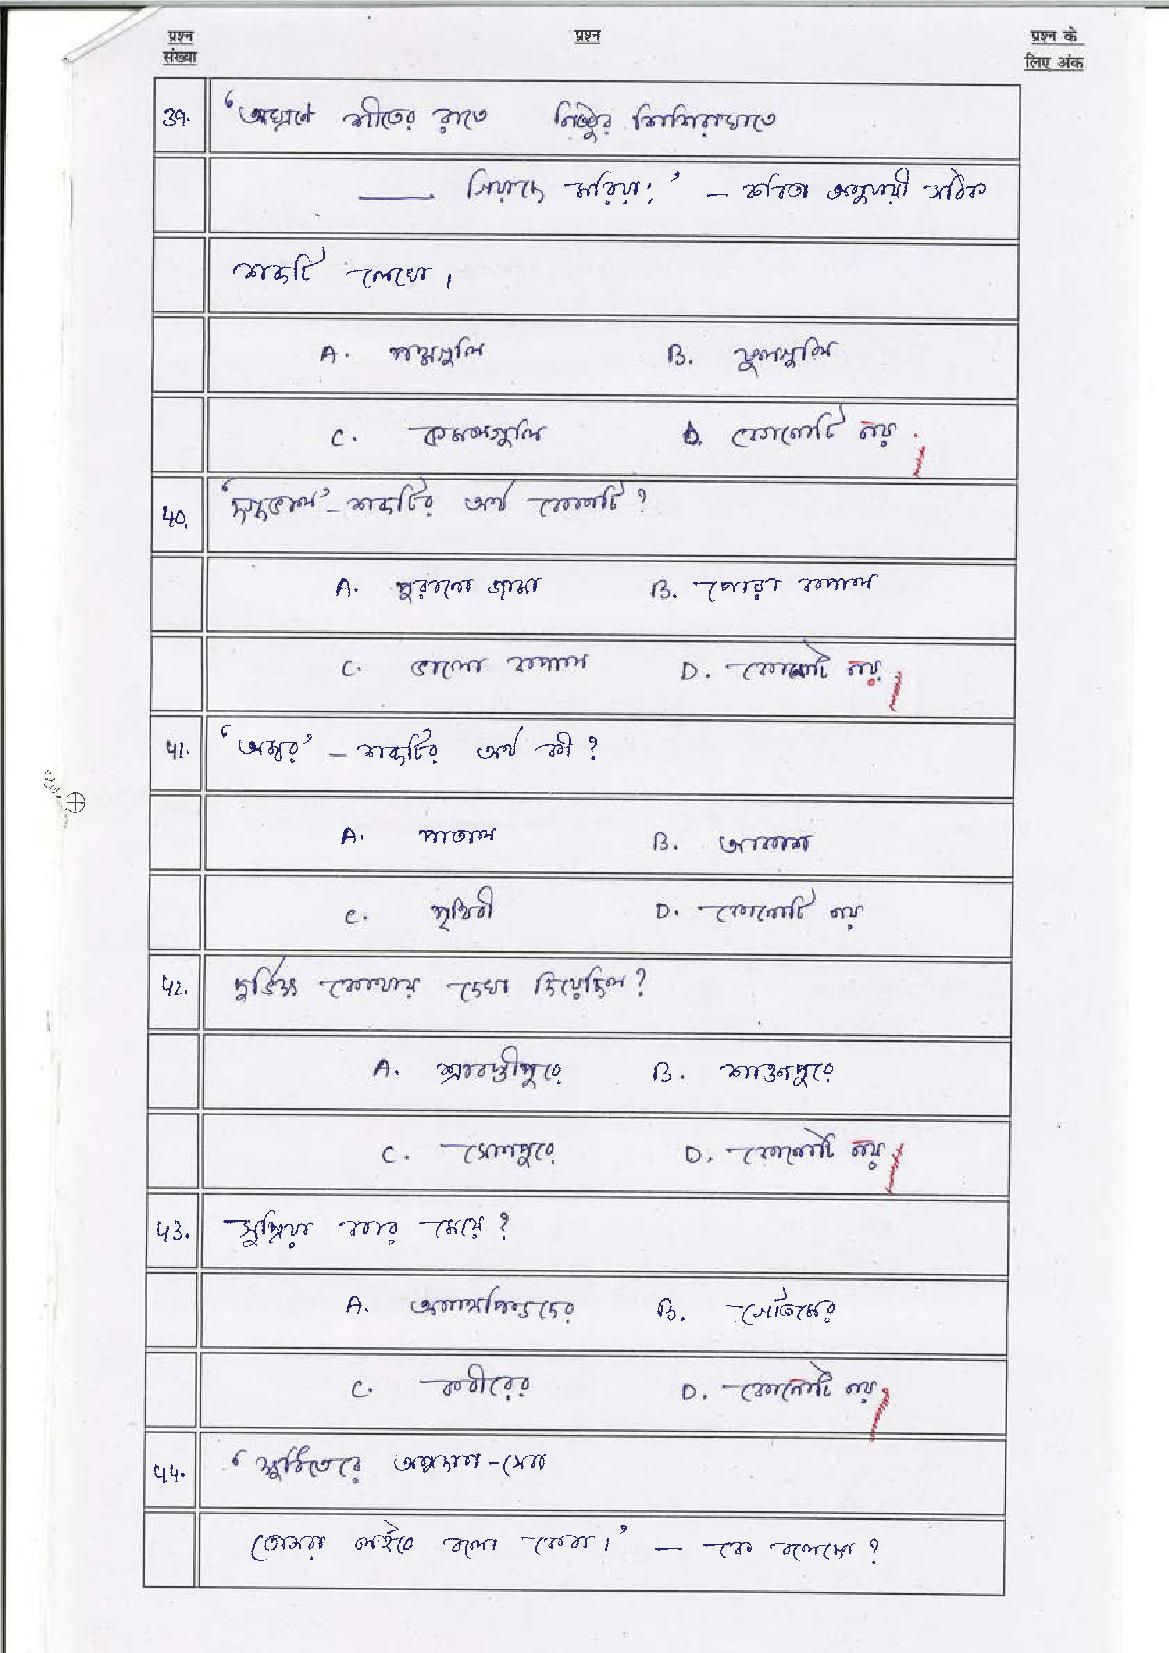 प्रश्न संख्या
प्रश्न
प्रश्न के लिए अंक
39. 'অঘ্রাণে শীতের রাতে নিষ্ঠুর শিশিরঘাতে
____ গিয়াছে মরিয়া;' – কবিতা অনুযায়ী সঠিক
শব্দটি লেখো।
A. পদ্মগুলি B. ফুলগুলি
C. কমলগুলি D. কোনোটি নয়
40. 'দগ্ধভাল' – শব্দটির অর্থ কোনটি?
A. পুরানো জামা B. পোড়া কপাল
C. ভালো কপাল D. কোনোটি নয়
41. 'অম্বর' – শব্দটির অর্থ কী?
A. পাতাল B. আকাশ
C. পৃথিবী D. কোনোটি নয়
42. দুর্ভিক্ষ কোথায় দেখা দিয়েছিল?
A. শ্রাবস্তীপুরে B. শাওনপুরে
C. সোনপুরে D. কোনোটি নয়
43. সুপ্রিয়া কার মেয়ে?
A. অনাথপিণ্ডদের B. গৌতমের
C. কবীরের D. কোনোটি নয়
44. 'ক্ষুধিতেরে অন্নদান-সেবা
তোমরা লইবে বলো কেবা।' – কে বলেছে?